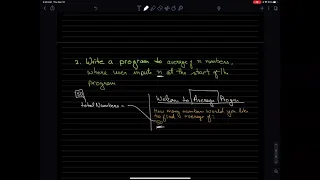 2. Write a program to average of n numbers,
where user inputs n at the start of the
program
total Numbers =
Welcome to Average Program
How many numbers would you like
to find average of: